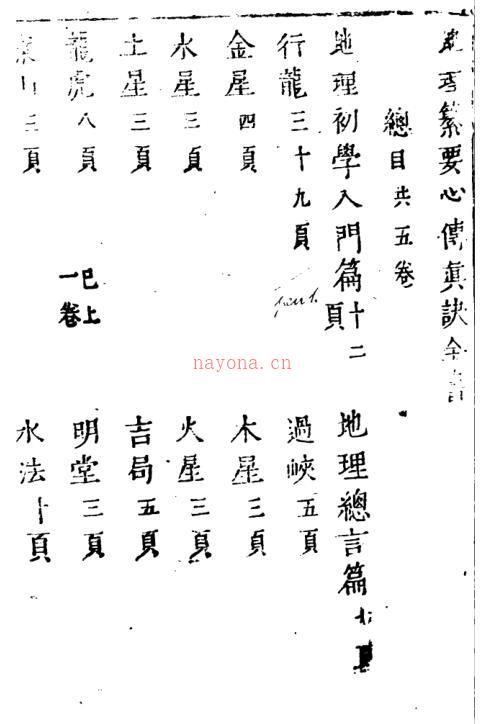 地理纂要心傳眞訣全書
總目共五卷
地理初學入門篇十二頁
地理總言篇七頁
行龍三十九頁
過峽五頁
part 1.
金星四頁
木星三頁
水星三頁
火星三頁
土星三頁
吉局五頁
龍虎八頁
巳上一卷
明堂三頁
案山三頁
水法十頁
nayona.cn